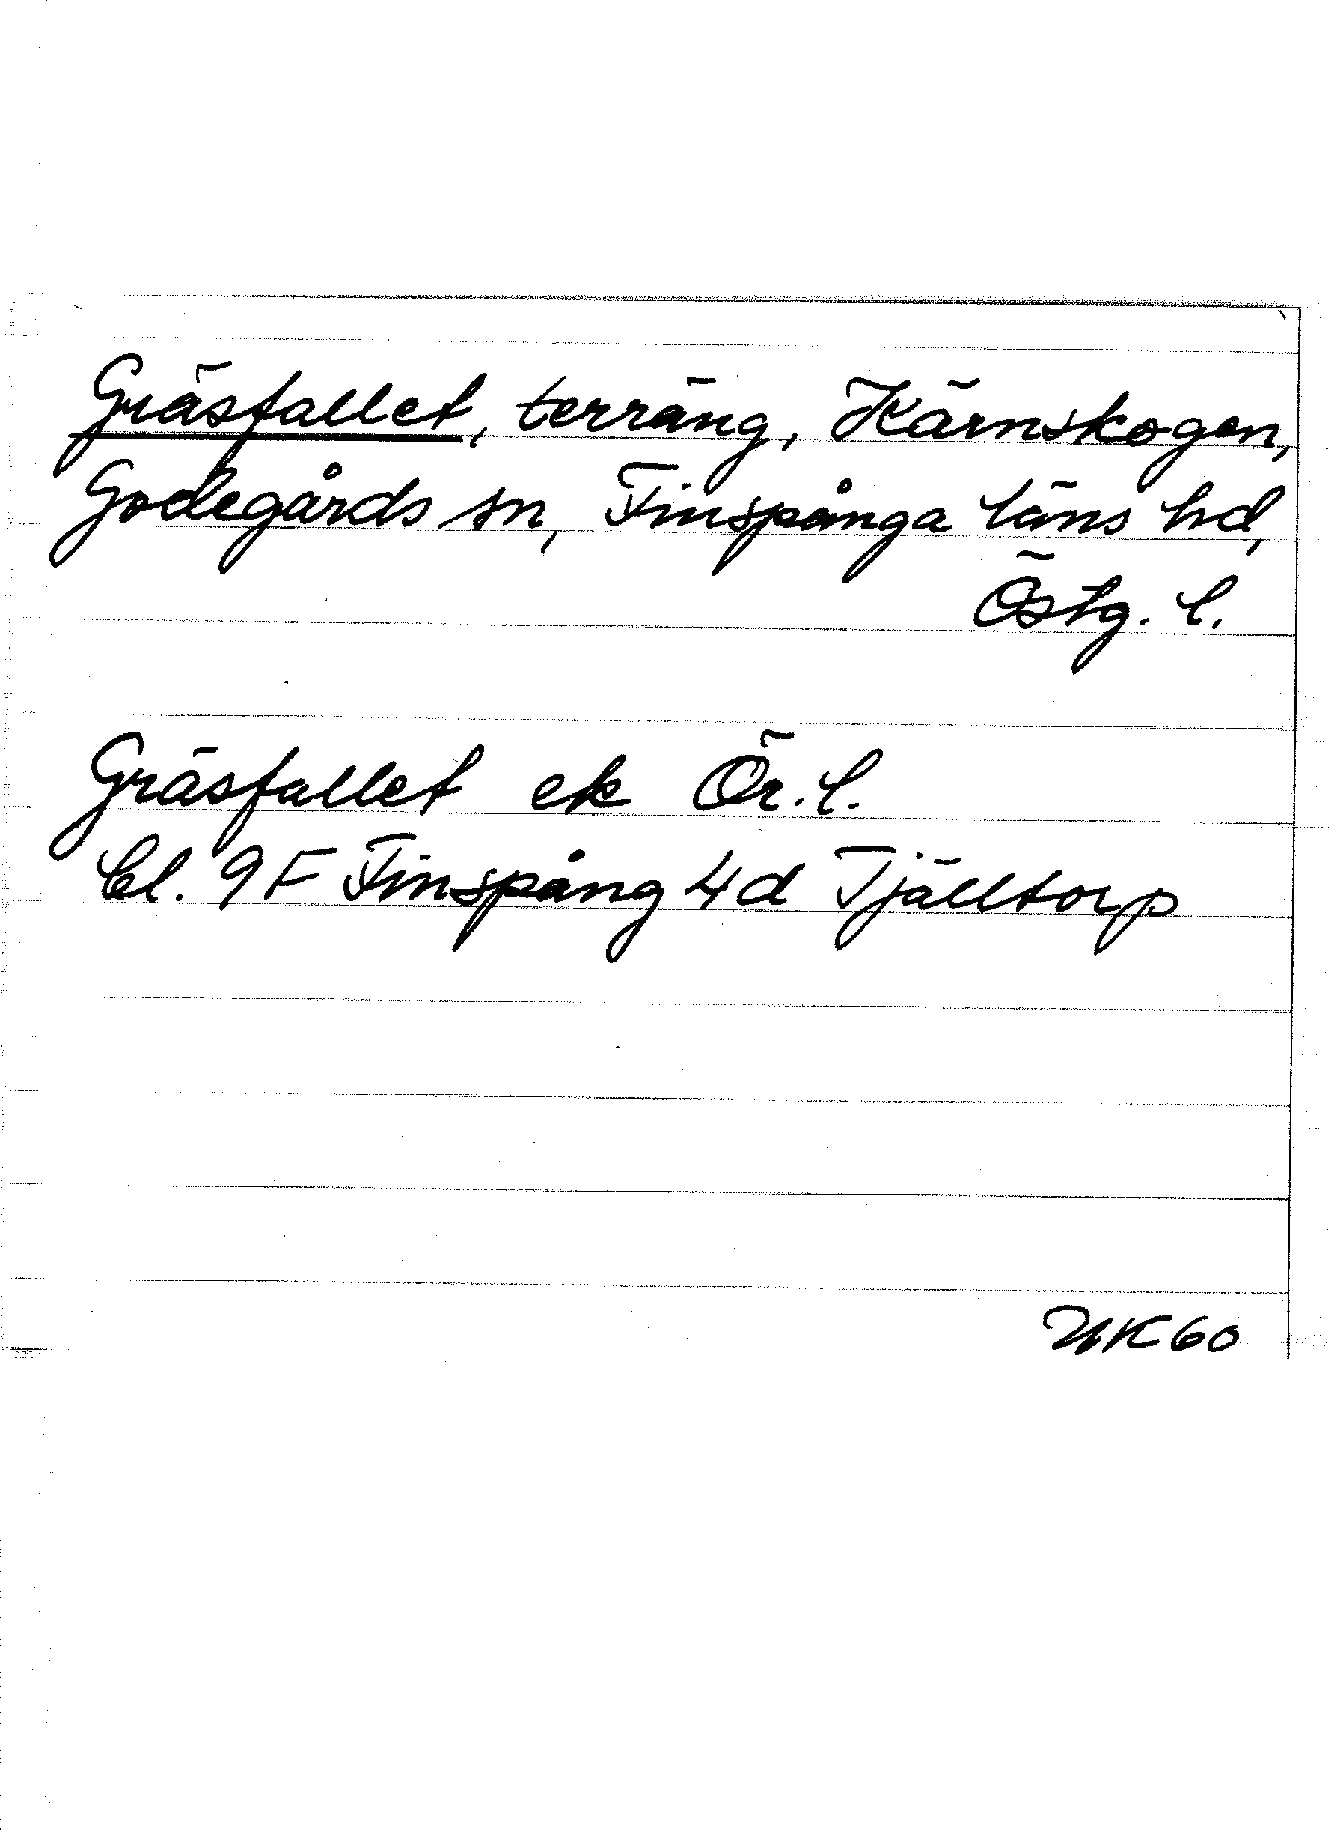 Gräsfallet, terräng, Kärnskogen,
Godegårds sn, Finspånga läns hd,
Östg. l.
Gräsfallet ek Ör. l.
bl. 9F Finspång 4d Tjälltorp
NK60